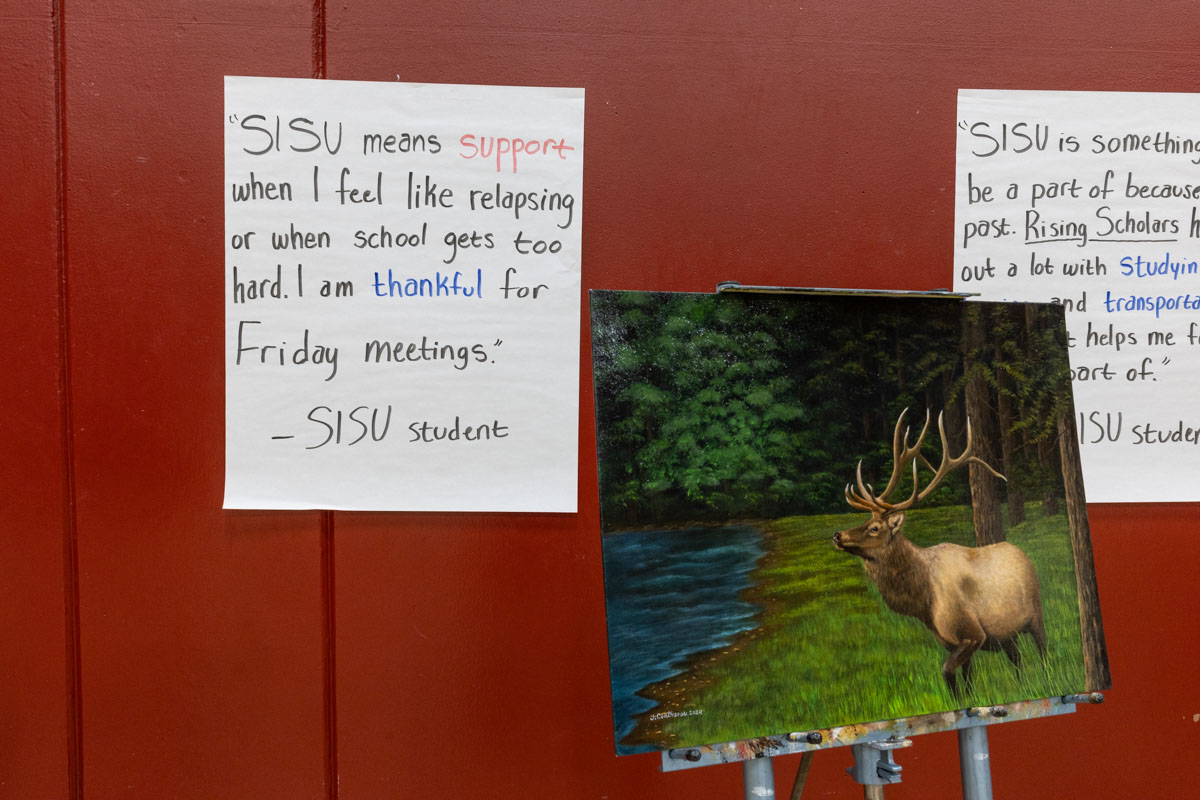 "SISU means support
when I feel like relapsing
or when school gets too
hard. I am thankful for
Friday meetings."
– SISU student
"SISU is something
be a part of because
past. Rising Scholars h
out a lot with studyin
and transporta
t helps me f
part of."
ISU studen